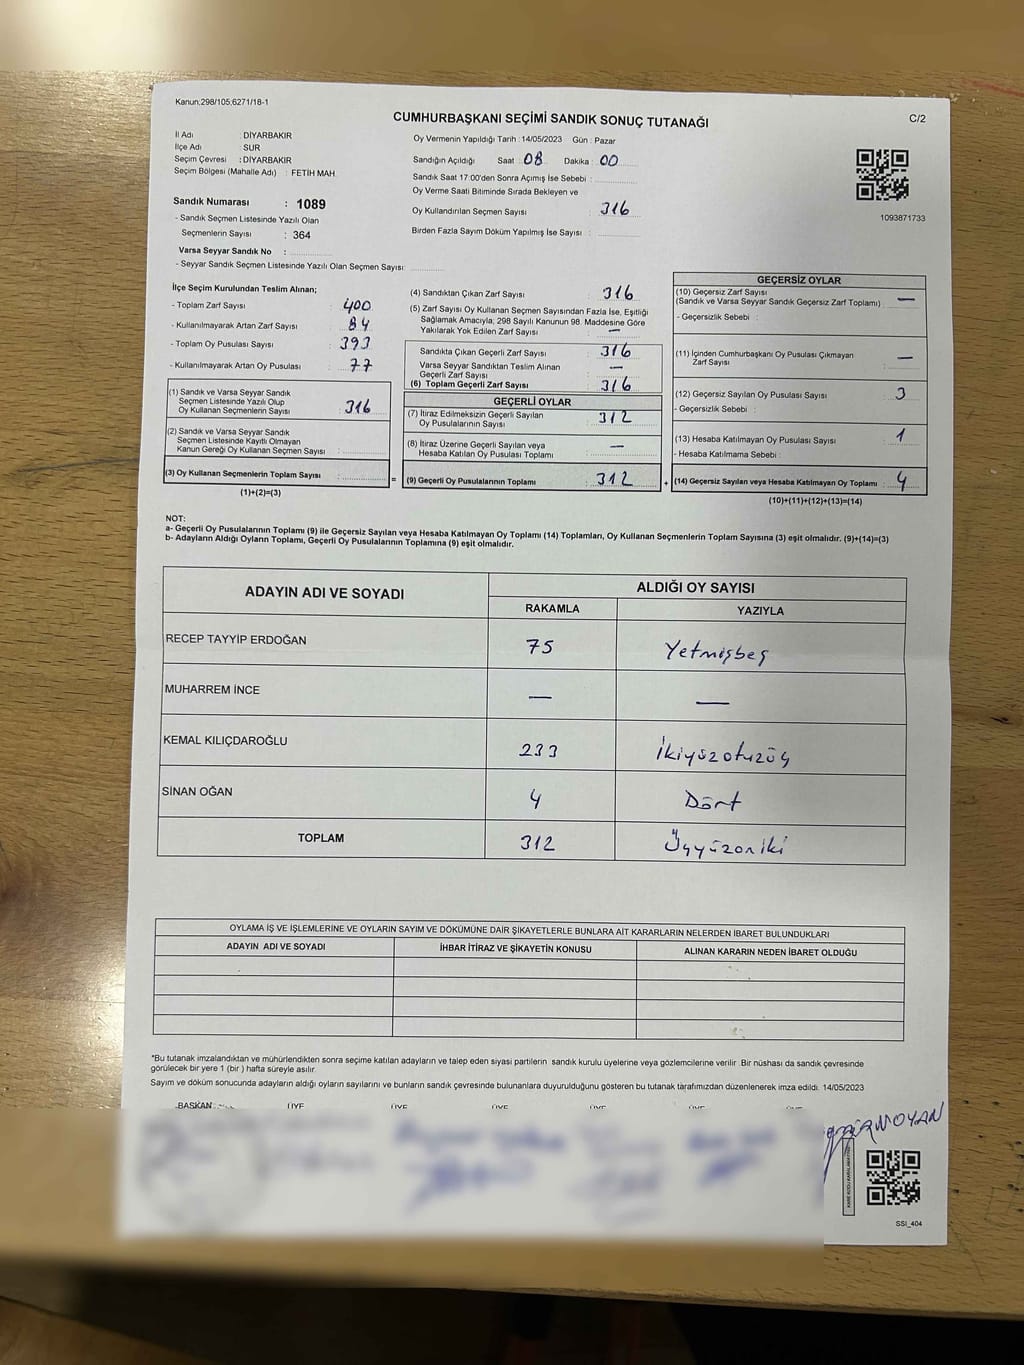 Kanun:298/105;6271/18-1
CUMHURBAŞKANI SEÇİMİ SANDIK SONUÇ TUTANAĞI
C/2
İl Adı : DİYARBAKIR
İlçe Adı : SUR
Seçim Çevresi : DİYARBAKIR
Seçim Bölgesi (Mahalle Adı) : FETİH MAH.
Oy Vermenin Yapıldığı Tarih : 14/05/2023 Gün : Pazar
Sandığın Açıldığı Saat 08 Dakika : 00
Sandık Saat 17:00'den Sonra Açımış İse Sebebi :
Oy Verme Saati Bitiminde Sırada Bekleyen ve
Oy Kullandırılan Seçmen Sayısı : 316
Birden Fazla Sayım Döküm Yapılmış İse Sayısı :
1093871733
Sandık Numarası : 1089
- Sandık Seçmen Listesinde Yazılı Olan
Seçmenlerin Sayısı : 364
Varsa Seyyar Sandık No :
- Seyyar Sandık Seçmen Listesinde Yazılı Olan Seçmen Sayısı:
İlçe Seçim Kurulundan Teslim Alınan;
- Toplam Zarf Sayısı : 400
- Kullanılmayarak Artan Zarf Sayısı : 84
- Toplam Oy Pusulası Sayısı : 393
- Kullanılmayarak Artan Oy Pusulası : 77
(1) Sandık ve Varsa Seyyar Sandık
Seçmen Listesinde Yazılı Olup
Oy Kullanan Seçmenlerin Sayısı : 316
(2) Sandık ve Varsa Seyyar Sandık
Seçmen Listesinde Kayıtlı Olmayan
Kanun Gereği Oy Kullanan Seçmen Sayısı :
(3) Oy Kullanan Seçmenlerin Toplam Sayısı : =
(1)+(2)=(3)
(4) Sandıktan Çıkan Zarf Sayısı : 316
(5) Zarf Sayısı Oy Kullanan Seçmen Sayısından Fazla İse, Eşitliği
Sağlamak Amacıyla, 298 Sayılı Kanunun 98. Maddesine Göre
Yakılarak Yok Edilen Zarf Sayısı : —
Sandıkta Çıkan Geçerli Zarf Sayısı : 316
Varsa Seyyar Sandıktan Teslim Alınan
Geçerli Zarf Sayısı : —
(6) Toplam Geçerli Zarf Sayısı : 316
GEÇERLİ OYLAR
(7) İtiraz Edilmeksizin Geçerli Sayılan
Oy Pusulalarının Sayısı : 312
(8) İtiraz Üzerine Geçerli Sayılan veya
Hesaba Katılan Oy Pusulası Toplamı : —
(9) Geçerli Oy Pusulalarının Toplamı : 312 +
GEÇERSİZ OYLAR
(10) Geçersiz Zarf Sayısı
(Sandık ve Varsa Seyyar Sandık Geçersiz Zarf Toplamı) : —
- Geçersizlik Sebebi :
(11) İçinden Cumhurbaşkanı Oy Pusulası Çıkmayan
Zarf Sayısı : —
(12) Geçersiz Sayılan Oy Pusulası Sayısı : 3
- Geçersizlik Sebebi :
(13) Hesaba Katılmayan Oy Pusulası Sayısı : 1
- Hesaba Katılmama Sebebi :
(14) Geçersiz Sayılan veya Hesaba Katılmayan Oy Toplamı : 4
(10)+(11)+(12)+(13)=(14)
NOT:
a- Geçerli Oy Pusulalarının Toplamı (9) ile Geçersiz Sayılan veya Hesaba Katılmayan Oy Toplamı (14) Toplamları, Oy Kullanan Seçmenlerin Toplam Sayısına (3) eşit olmalıdır. (9)+(14)=(3)
b- Adayların Aldığı Oyların Toplamı, Geçerli Oy Pusulalarının Toplamına (9) eşit olmalıdır.
ADAYIN ADI VE SOYADI
ALDIĞI OY SAYISI
RAKAMLA YAZIYLA
RECEP TAYYİP ERDOĞAN 75 Yetmişbeş
MUHARREM İNCE — —
KEMAL KILIÇDAROĞLU 233 İkiyüzotuzüç
SİNAN OĞAN 4 Dört
TOPLAM 312 Üçyüzoniki
OYLAMA İŞ VE İŞLEMLERİNE VE OYLARIN SAYIM VE DÖKÜMÜNE DAİR ŞİKAYETLERLE BUNLARA AİT KARARLARIN NELERDEN İBARET BULUNDUKLARI
ADAYIN ADI VE SOYADI İHBAR İTİRAZ VE ŞİKAYETİN KONUSU ALINAN KARARIN NEDEN İBARET OLDUĞU
*Bu tutanak imzalandıktan ve mühürlendikten sonra seçime katılan adayların ve talep eden siyasi partilerin sandık kurulu üyelerine veya gözlemcilerine verilir. Bir nüshası da sandık çevresinde
görülecek bir yere 1 (bir ) hafta süreyle asılır.
Sayım ve döküm sonucunda adayların aldığı oyların sayılarını ve bunların sandık çevresinde bulunanlara duyurulduğunu gösteren bu tutanak tarafımızdan düzenlenerek imza edildi. 14/05/2023
BAŞKAN ÜYE ÜYE ÜYE ÜYE ÜYE ÜYE
SSI_404